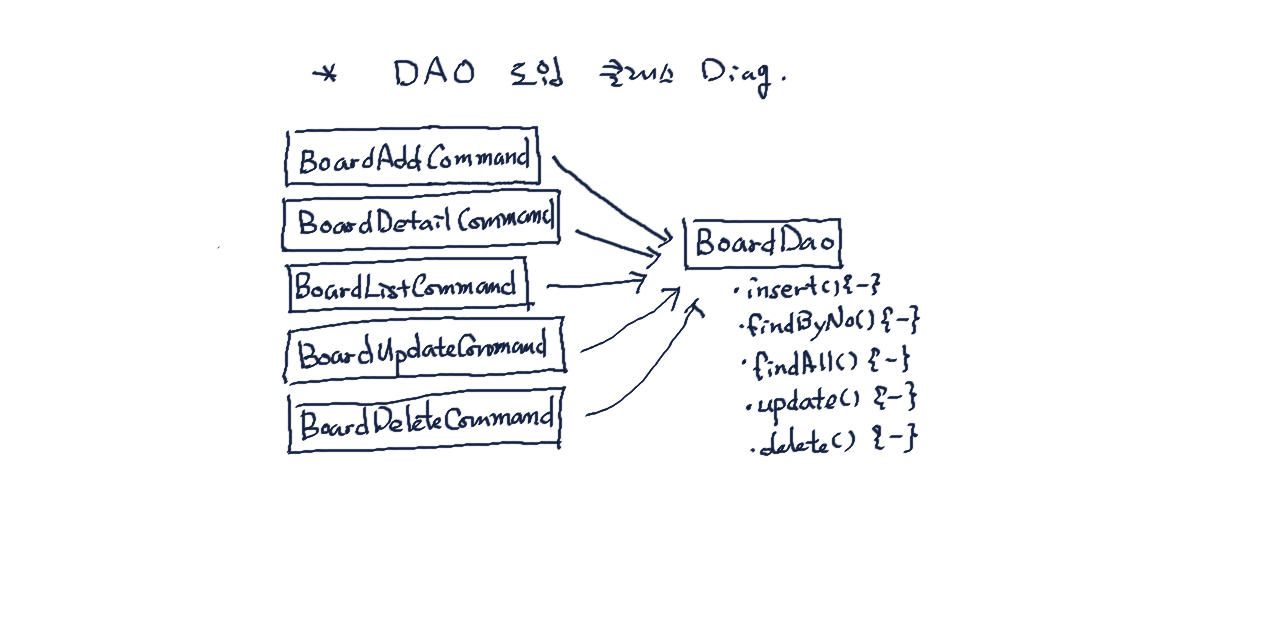 * DAO 도입 클래스 Diag.
BoardAddCommand
BoardDetailCommand
BoardListCommand
BoardUpdateCommand
BoardDeleteCommand
BoardDao
· insert(){-}
· findByNo(){-}
· findAll() {-}
· update() {-}
· delete() {-}